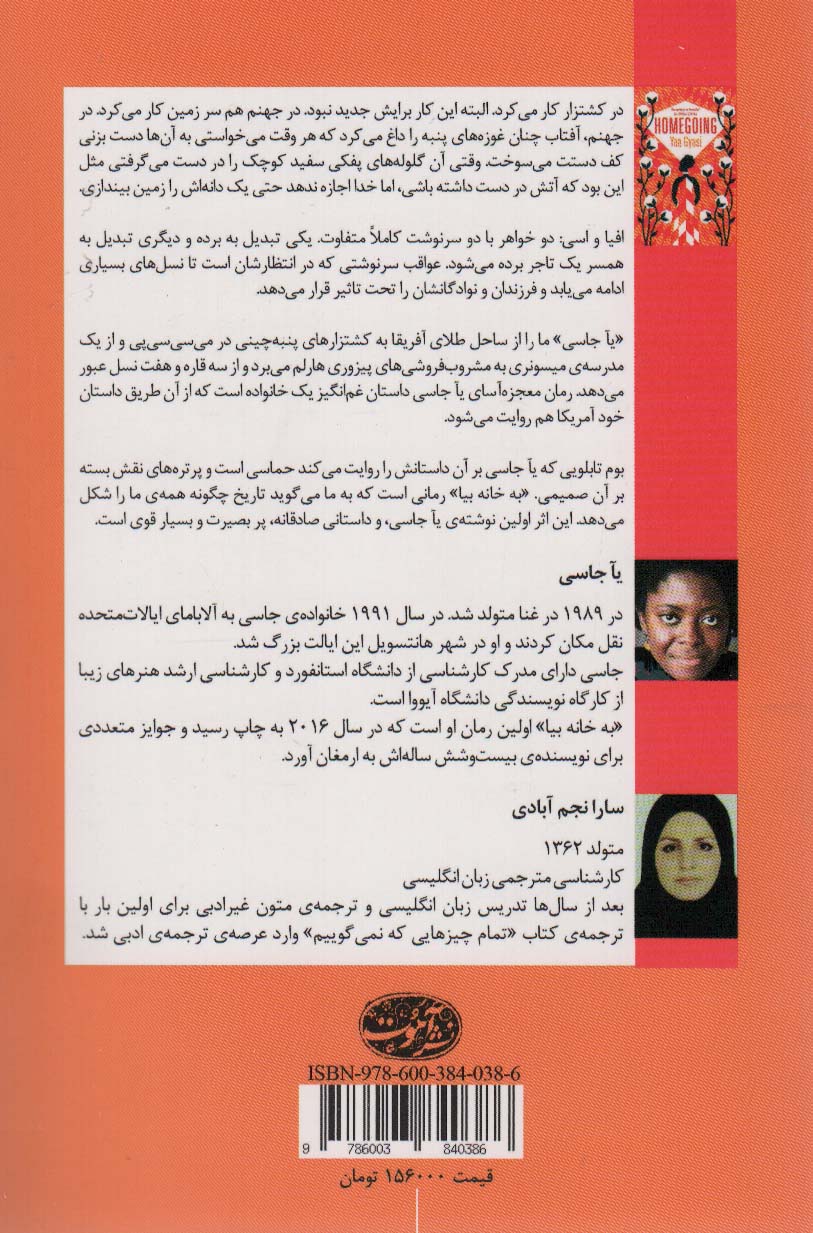 HOMEGOING
Yaa Gyasi
در کشتزار کار می‌کرد. البته این کار برایش جدید نبود. در جهنم هم سر زمین کار می‌کرد. در
جهنم، آفتاب چنان غوزه‌های پنبه را داغ می‌کرد که هر وقت می‌خواستی به آن‌ها دست بزنی
کف دستت می‌سوخت. وقتی آن گلوله‌های پفکی سفید کوچک را در دست می‌گرفتی مثل
این بود که آتش در دست داشته باشی، اما خدا اجازه ندهد حتی یک دانه‌اش را زمین بیندازی.
افیا و اسی: دو خواهر با دو سرنوشت کاملاً متفاوت. یکی تبدیل به برده و دیگری تبدیل به
همسر یک تاجر برده می‌شود. عواقب سرنوشتی که در انتظارشان است تا نسل‌های بسیاری
ادامه می‌یابد و فرزندان و نوادگانشان را تحت تاثیر قرار می‌دهد.
«یآ جاسی» ما را از ساحل طلای آفریقا به کشتزارهای پنبه‌چینی در می‌سی‌سی‌پی و از یک
مدرسه‌ی میسونری به مشروب‌فروشی‌های پیزوری هارلم می‌برد و از سه قاره و هفت نسل عبور
می‌دهد. رمان معجزه‌آسای یآ جاسی داستان غم‌انگیز یک خانواده است که از آن طریق داستان
خود آمریکا هم روایت می‌شود.
بوم تابلویی که یآ جاسی بر آن داستانش را روایت می‌کند حماسی است و پرتره‌های نقش بسته
بر آن صمیمی. «به خانه بیا» رمانی است که به ما می‌گوید تاریخ چگونه همه‌ی ما را شکل
می‌دهد. این اثر اولین نوشته‌ی یآ جاسی، و داستانی صادقانه، پر بصیرت و بسیار قوی است.
یآ جاسی
در ۱۹۸۹ در غنا متولد شد. در سال ۱۹۹۱ خانواده‌ی جاسی به آلابامای ایالات‌متحده
نقل مکان کردند و او در شهر هانتسویل این ایالت بزرگ شد.
جاسی دارای مدرک کارشناسی از دانشگاه استانفورد و کارشناسی ارشد هنرهای زیبا
از کارگاه نویسندگی دانشگاه آیووا است.
«به خانه بیا» اولین رمان او است که در سال ۲۰۱۶ به چاپ رسید و جوایز متعددی
برای نویسنده‌ی بیست‌وشش ساله‌اش به ارمغان آورد.
سارا نجم آبادی
متولد ۱۳۶۲
کارشناسی مترجمی زبان انگلیسی
بعد از سال‌ها تدریس زبان انگلیسی و ترجمه‌ی متون غیرادبی برای اولین بار با
ترجمه‌ی کتاب «تمام چیزهایی که نمی‌گوییم» وارد عرصه‌ی ترجمه‌ی ادبی شد.
ISBN-978-600-384-038-6
9 786003 840386
قیمت ۱۵۶۰۰۰ تومان